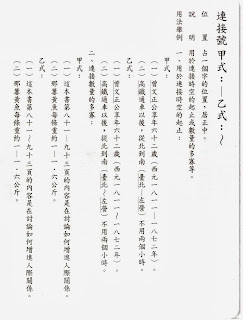 連接號 甲式：— 乙式：～
位　置　占一個字的位置，居正中。
說　明　用於連接時空的起止或數量的多寡等。
用法舉例　一、用於連接時空的起止：
甲式：
（一）曾文正公享年六十二歲（西元一八一一—一八七二年）。
（二）高鐵通車以後，從北到南（臺北—左營）不用兩個小時。
乙式：
（一）曾文正公享年六十二歲（西元一八一一～一八七二年）。
（二）高鐵通車以後，從北到南（臺北～左營）不用兩個小時。
二、連接數量的多寡：
甲式：
（一）這本書第八十一—九十三頁的內容是在討論如何增進人際關係。
（二）那簍黃魚每條重約一—一．六公斤。
乙式：
（一）這本書第八十一～九十三頁的內容是在討論如何增進人際關係。
（二）那簍黃魚每條重約一～一．六公斤。